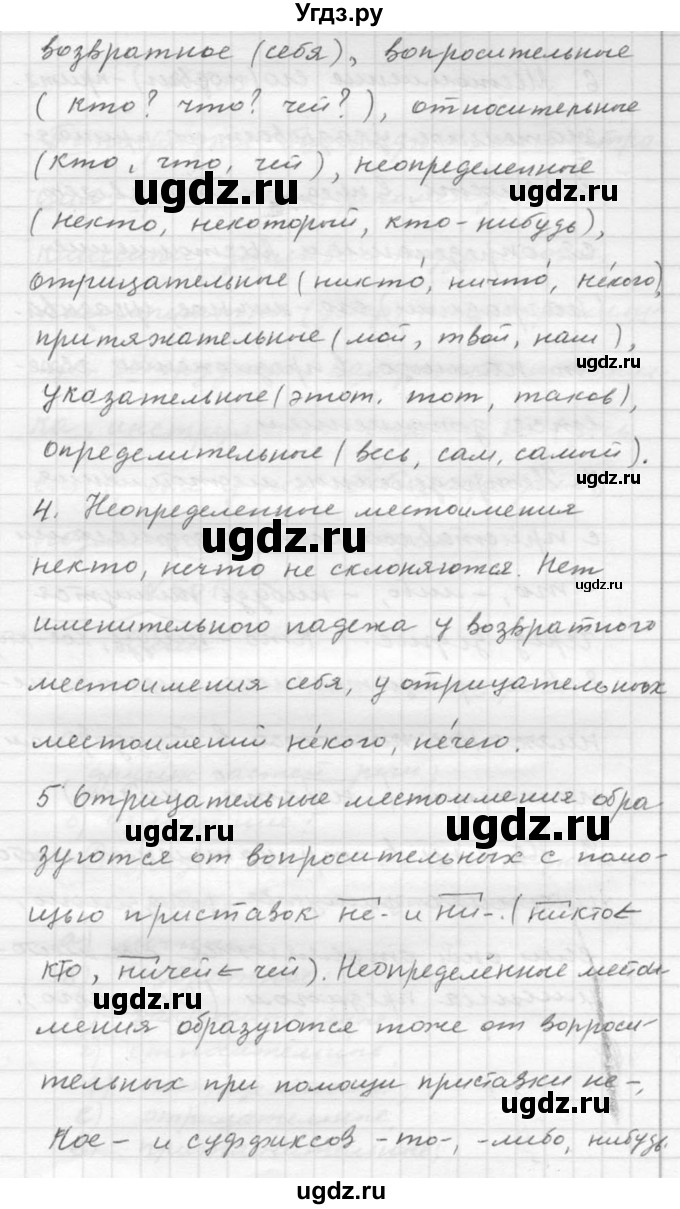 Угдз.ру
возвратное (себя), вопросительные
( кто? что? чей? ), относительные
(кто, что, чей), неопределенные
ugdz.ru
ugdz.ru
(некто, некоторый, кто-нибудь),
отрицательные (никто́, ничто́, не́кого),
притяжательные (мой, твой, наш),
ugdz.ru
указательные (этот. тот, таков),
определительные (весь, сам, самый).
ugdz.ru
4. Неопределенные местоимения
ugdz.ru
некто, нечто не склоняются. Нет
ugdz.ru
именительного падежа у возвратного
местоимения себя, у отрицательных
местоимений не́кого, не́чего.
5 Отрицательные местоимения обра
ugdz.ru
ugdz.ru
зуются от вопросительных с помо-
щью приставок не- и ни-. (никто←
кто, ничей← чей). Неопределённые местои-
ugdz.ru
мения образуются тоже от вопроси-
тельных при помощи приставки не-,
ugdz.ru
Кое- и суффиксов -то-, -либо, нибудь.
ugdz.ru